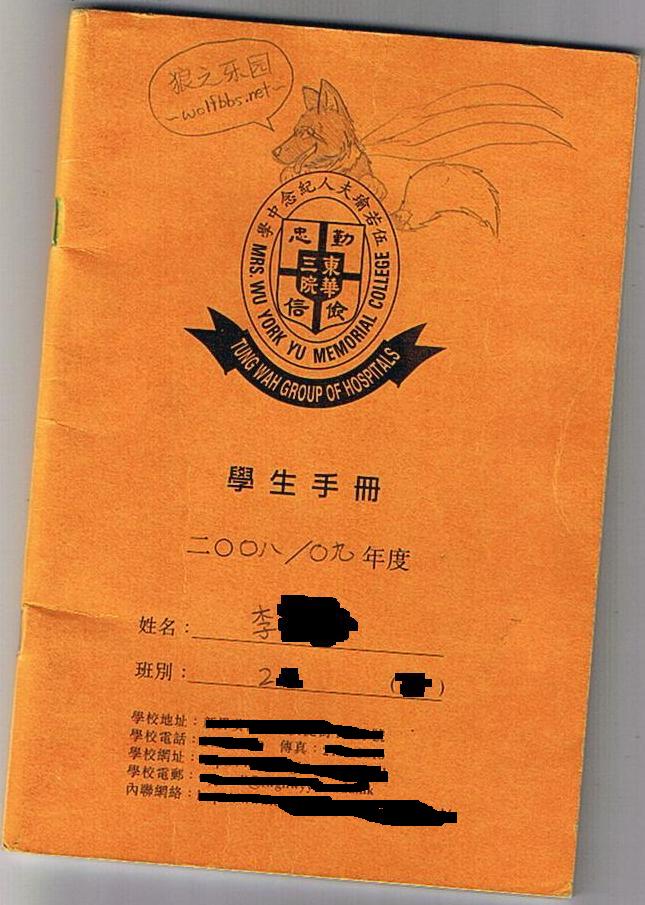 狼之乐园
~wolfbbs.net~
伍若瑜夫人紀念中學
忠 勤
東華
三院
信 儉
MRS. WU YORK YU MEMORIAL COLLEGE
TUNG WAH GROUP OF HOSPITALS
學生手冊
二〇〇八/〇九年度
姓名：李
班別：2 ( )
學校地址：
學校電話： 傳真：
學校網址：
學校電郵：
內聯網絡：